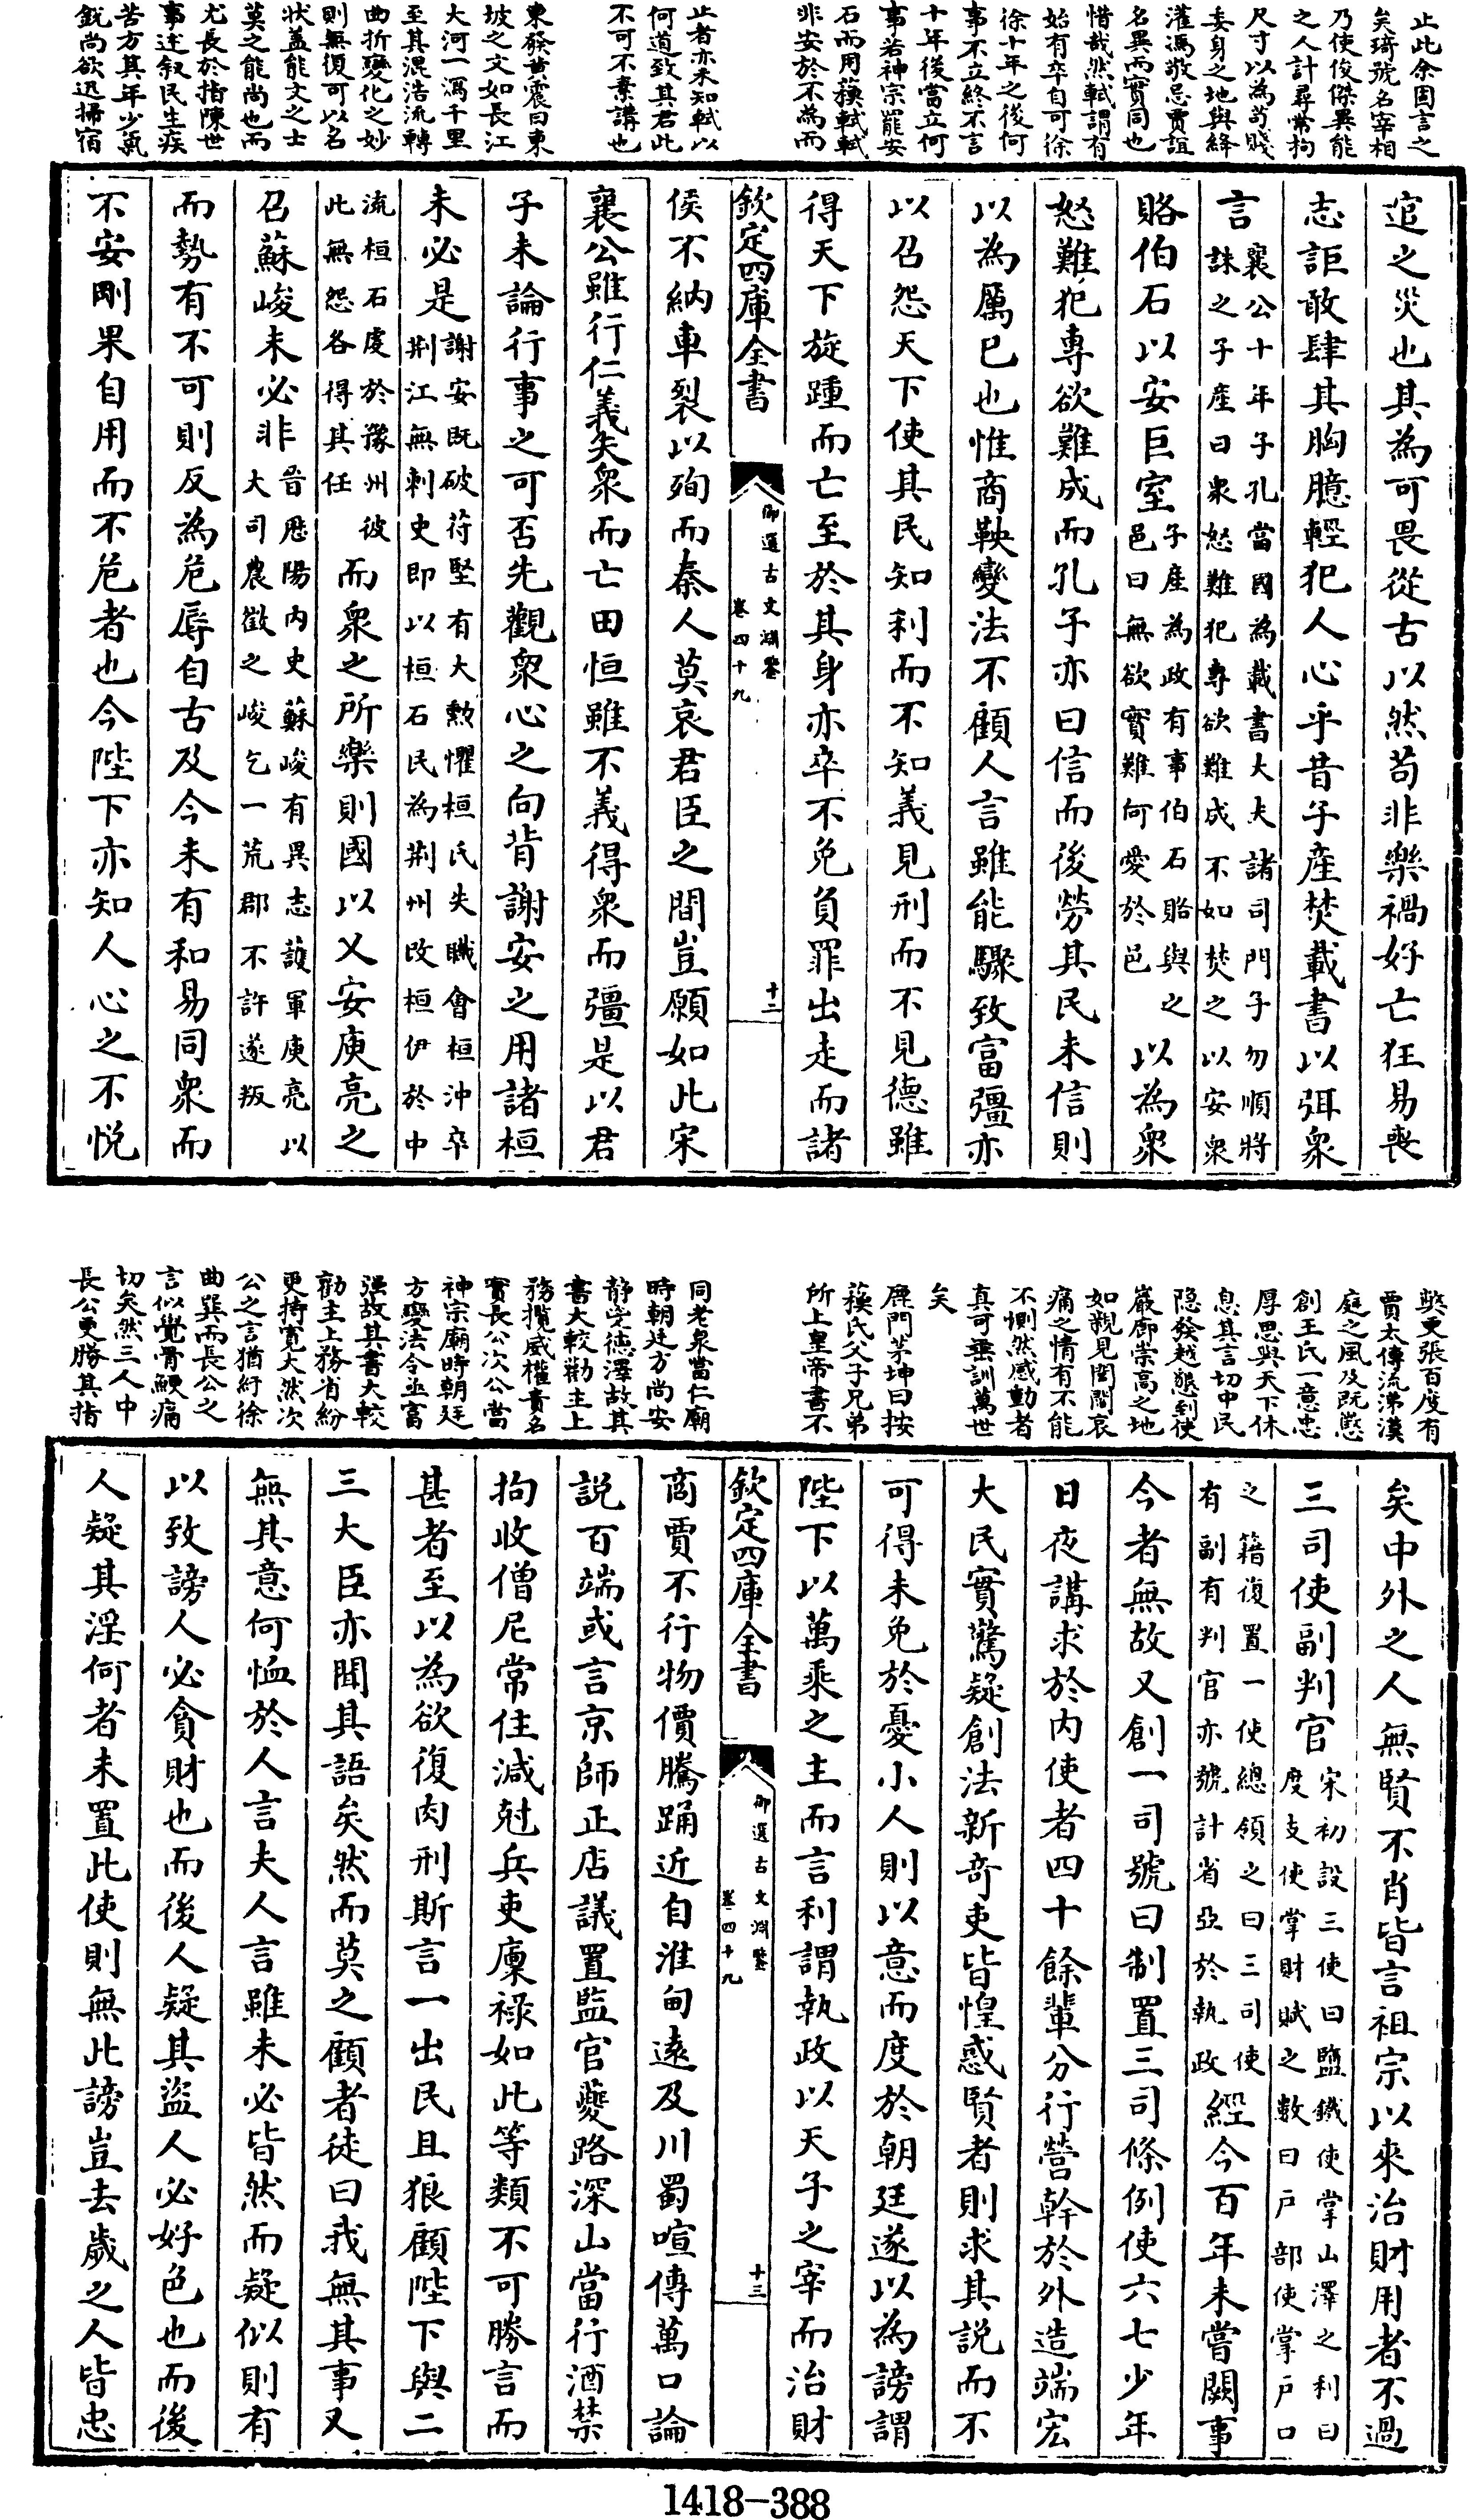 止此余因言之
矣琦號名宰相
乃使俊傑異能
之人計尋常拘
尺寸以為苟賤
委身之地與絳
灌馮敬忌賈誼
名異而實同也
惜哉然軾謂有
始有卒自可徐
徐十年之後何
事不立終不言
十年後當立何
事若神宗罷安
石而用蘇軾軾
非安於不為而
止者亦未知軾以
何道致其君此
不可不素講也
東發黃震曰東
坡之文如長江
大河一瀉千里
至其混浩流轉
曲折變化之妙
則無復可以名
狀蓋能文之士
莫之能尚也而
尤長於指陳世
事述叙民生疾
苦方其年少氣
鋭尚欲迅掃宿
逭之災也其為可畏從古以然苟非樂禍好亡狂易喪
志詎敢肆其胸臆輕犯人心乎昔子產焚載書以弭衆
言襄公十年子孔當國為載書大夫諸司門子勿順將誅之子產曰衆怒難犯專欲難成不如焚之以安衆
賂伯石以安巨室子產為政有事伯石賂與之邑曰無欲實難何愛於邑以為衆
怒難犯專欲難成而孔子亦曰信而後勞其民未信則
以為厲已也惟商鞅變法不顧人言雖能驟致富彊亦
以召怨天下使其民知利而不知義見刑而不見德雖
得天下旋踵而亡至於其身亦卒不免負罪出走而諸
欽定四庫全書
御選古文淵鑒
卷四十九
十二
侯不納車裂以殉而秦人莫哀君臣之間豈願如此宋
襄公雖行仁義失衆而亡田恒雖不義得衆而彊是以君
子未論行事之可否先觀衆心之向背謝安之用諸桓
未必是謝安既破苻堅有大勲懼桓氏失職會桓沖卒荆江無刺史即以桓石民為荆州改桓伊於中
流桓石虔於豫州彼此無怨各得其任而衆之所樂則國以乂安庾亮之
召蘇峻未必非晉厯陽內史蘇峻有異志護軍庾亮以大司農徵之峻乞一荒郡不許遂叛
而勢有不可則反為危辱自古及今未有和易同衆而
不安剛果自用而不危者也今陛下亦知人心之不悅
弊更張百度有
賈太傅流涕漢
庭之風及既懲
創王氏一意忠
厚思與天下休
息其言切中民
隠發越懇到使
巖廊崇高之地
如親見閭閻哀
痛之情有不能
不惻然感動者
真可垂訓萬世
矣
鹿門茅坤曰按
蘇氏父子兄弟
所上皇帝書不
同老泉當仁廟
時朝廷方尚安
靜旁德澤故其
書大較勸主上
務攬威權責名
實長公次公當
神宗廟時朝廷
方變法令亟富
强故其書大較
勸主上務省紛
更持寛大然次
公之言猶紆徐
曲巽而長公之
言似覺骨鯁痛
切矣然三人中
長公更勝其指
矣中外之人無賢不肖皆言祖宗以來治財用者不過
三司使副判官宋初設三使曰鹽鐵使掌山澤之利曰度支使掌財賦之數曰戶部使掌戶口
之籍復置一使總領之曰三司使有副有判官亦號計省亞於執政經今百年未嘗闕事
今者無故又創一司號曰制置三司條例使六七少年
日夜講求於内使者四十餘輩分行營幹於外造端宏
大民實驚疑創法新奇吏皆惶惑賢者則求其説而不
可得未免於憂小人則以意而度於朝廷遂以為謗謂
陛下以萬乘之主而言利謂執政以天子之宰而治財
欽定四庫全書
御選古文淵鑒
卷四十九
十三
商賈不行物價騰踊近自淮甸遠及川蜀喧傳萬口論
説百端或言京師正店議置監官夔路深山當行酒禁
拘收僧尼常住減尅兵吏廩禄如此等類不可勝言而
甚者至以為欲復肉刑斯言一出民且狼顧陛下與二
三大臣亦聞其語矣然而莫之顧者徒曰我無其事又
無其意何恤於人言夫人言雖未必皆然而疑似則有
以致謗人必貪財也而後人疑其盜人必好色也而後
人疑其淫何者未置此使則無此謗豈去歲之人皆忠
1418-388